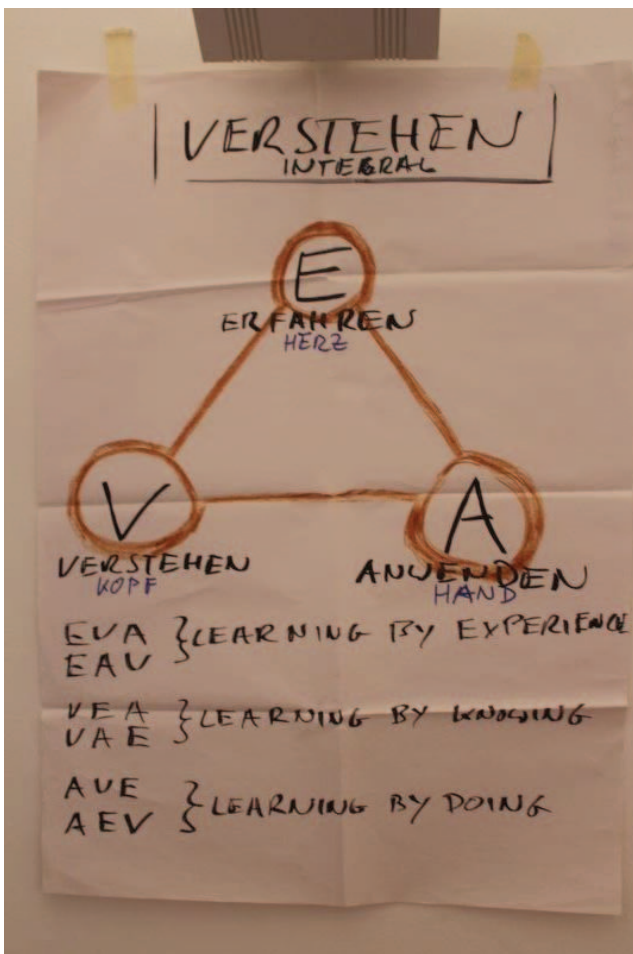 VERSTEHEN
INTEGRAL
E
ERFAHREN
HERZ
V
A
VERSTEHEN
ANWENDEN
KOPF
HAND
EVA } LEARNING BY EXPERIENCE
EAV
VEA } LEARNING BY KNOWING
VAE
AVE } LEARNING BY DOING
AEV